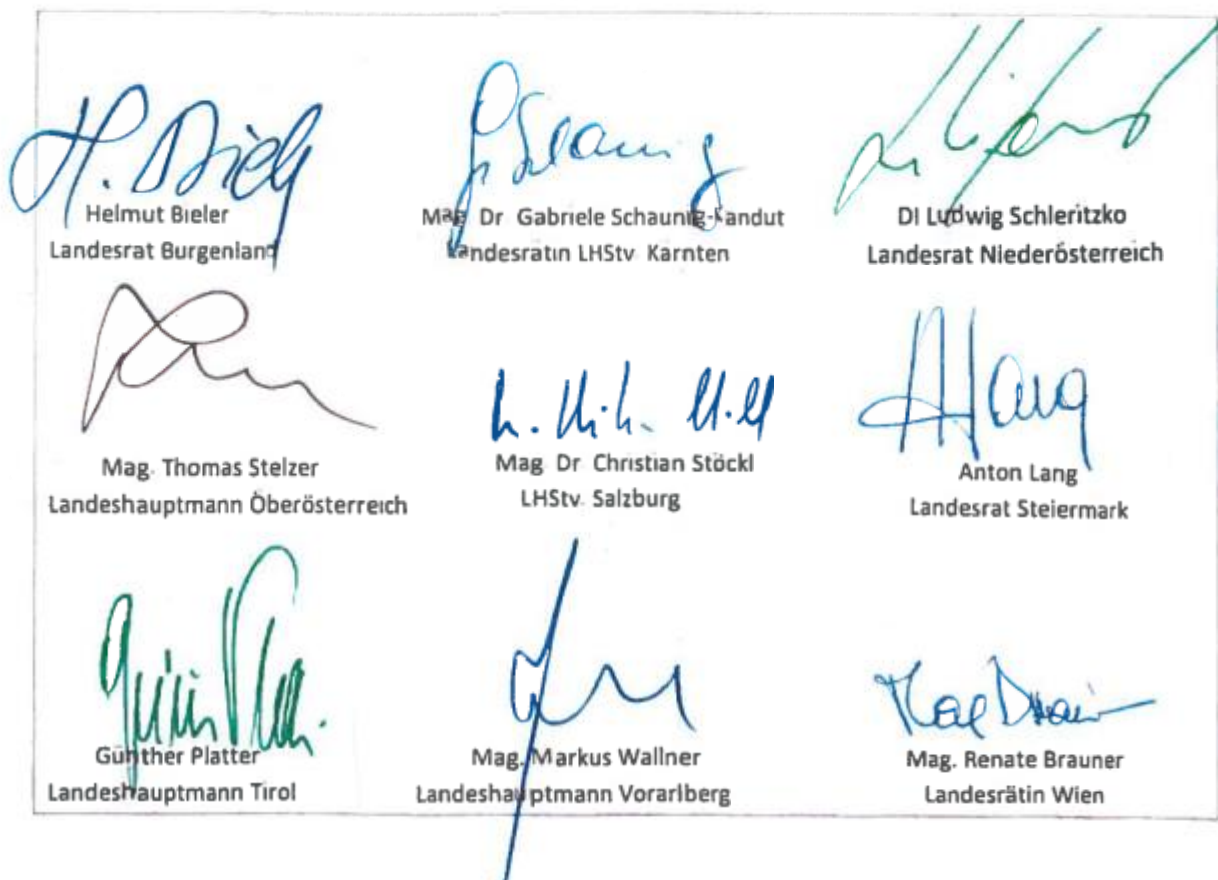 Helmut Bieler
Landesrat Burgenland
Mag Dr Gabriele Schaunig-Kandut
Landesrätin LHStv Kärnten
DI Ludwig Schleritzko
Landesrat Niederösterreich
Mag. Thomas Stelzer
Landeshauptmann Oberösterreich
Mag Dr Christian Stöckl
LHStv. Salzburg
Anton Lang
Landesrat Steiermark
Günther Platter
Landeshauptmann Tirol
Mag. Markus Wallner
Landeshauptmann Vorarlberg
Mag. Renate Brauner
Landesrätin Wien